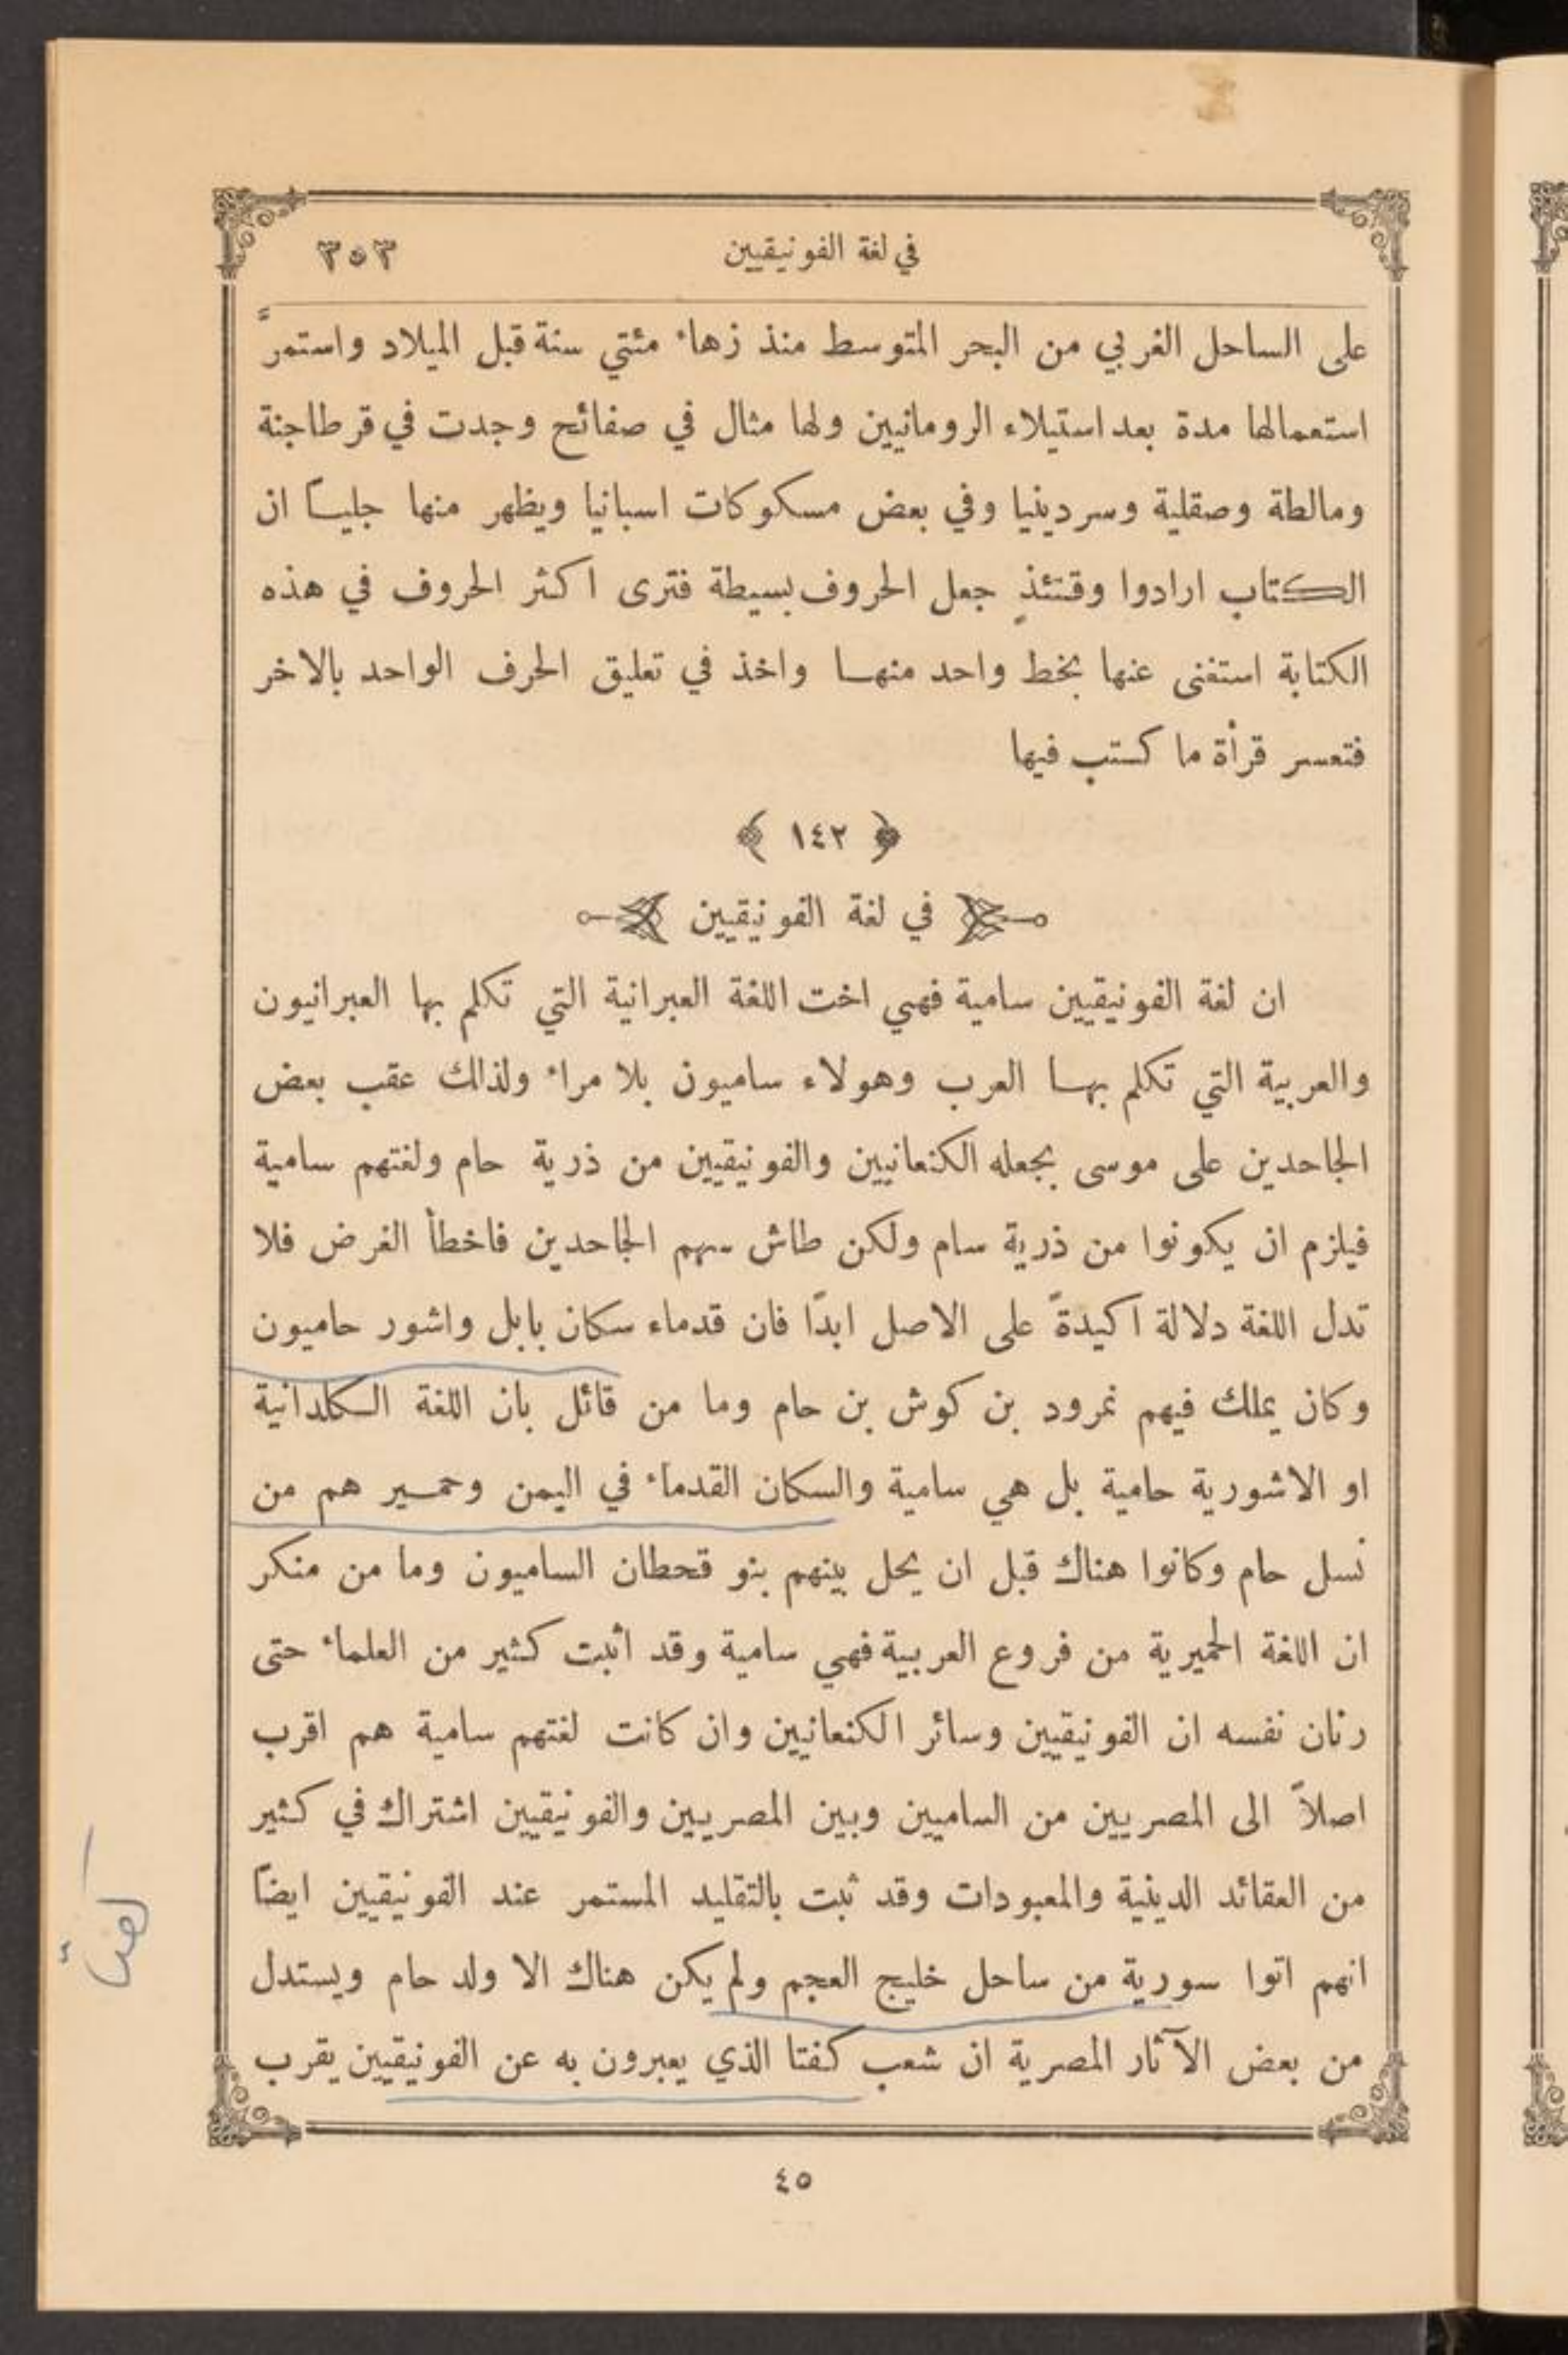 في لغة الفونيقيين ٣٥٣
على الساحل الغربي من البحر المتوسط منذ زهاء مئتي سنة قبل الميلاد واستمرَّ
استعمالها مدة بعد استيلاء الرومانيين ولها مثال في صفائح وجدت في قرطاجنة
ومالطة وصقلية وسردينيا وفي بعض مسكوكات اسبانيا ويظهر منها جليـاً ان
الكتاب ارادوا وقتئذٍ جعل الحروف بسيطة فترى اكثر الحروف في هذه
الكتابة استغنى عنها بخط واحد منهـا واخذ في تعليق الحرف الواحد بالاخر
فتعسر قرأة ما كتب فيها
﴿ ١٤٢ ﴾
في لغة الفونيقيين
ان لغة الفونيقيين سامية فهي اخت اللغة العبرانية التي تكلم بها العبرانيون
والعربية التي تكلم بهـا العرب وهولاء ساميون بلا مراء ولذلك عقب بعض
الجاحدين على موسى بجعله الكنعانيين والفونيقيين من ذرية حام ولغتهم سامية
فيلزم ان يكونوا من ذرية سام ولكن طاش سهم الجاحدين فاخطأ الغرض فلا
تدل اللغة دلالة اكيدةً على الاصل ابدًا فان قدماء سكان بابل واشور حاميون
وكان يملك فيهم نمرود بن كوش بن حام وما من قائل بان اللغة الكلدانية
او الاشورية حامية بل هي سامية والسكان القدماء في اليمن وحمـير هم من
نسل حام وكانوا هناك قبل ان يحل بينهم بنو قحطان الساميون وما من منكر
ان اللغة الحميرية من فروع العربية فهي سامية وقد اثبت كثير من العلماء حتى
رنان نفسه ان الفونيقيين وسائر الكنعانيين وان كانت لغتهم سامية هم اقرب
اصلاً الى المصريين من الساميين وبين المصريين والفونيقيين اشتراك في كثير
من العقائد الدينية والمعبودات وقد ثبت بالتقليد المستمر عند الفونيقيين ايضاً
انهم اتوا سورية من ساحل خليج العجم ولم يكن هناك الا ولد حام ويستدل
من بعض الآثار المصرية ان شعب كفتا الذي يعبرون به عن الفونيقيين يقرب
٤٥